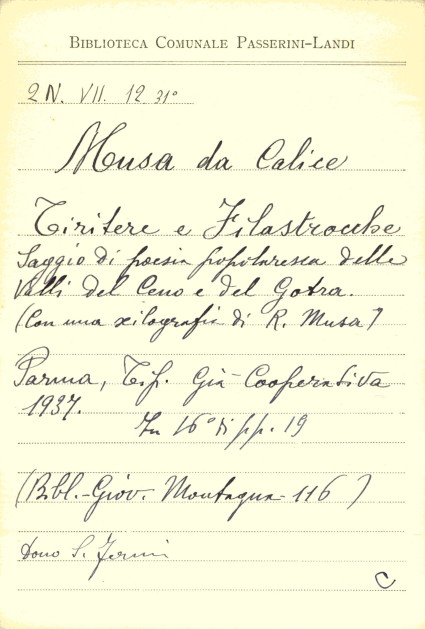 BIBLIOTECA COMUNALE PASSERINI-LANDI
2 N. VII. 12 31°
Musa da Calice
Tiritere e Filastrocche
Saggio di poesia popolaresca delle
Valli del Ceno e del Gotra.
(Con una xilografia di R. Musa)
Parma, Tip. Già Cooperativa
1937.
In 16° di pp. 19
(Bibl. Giov. Montagna 116)
Dono S. Fermi
C